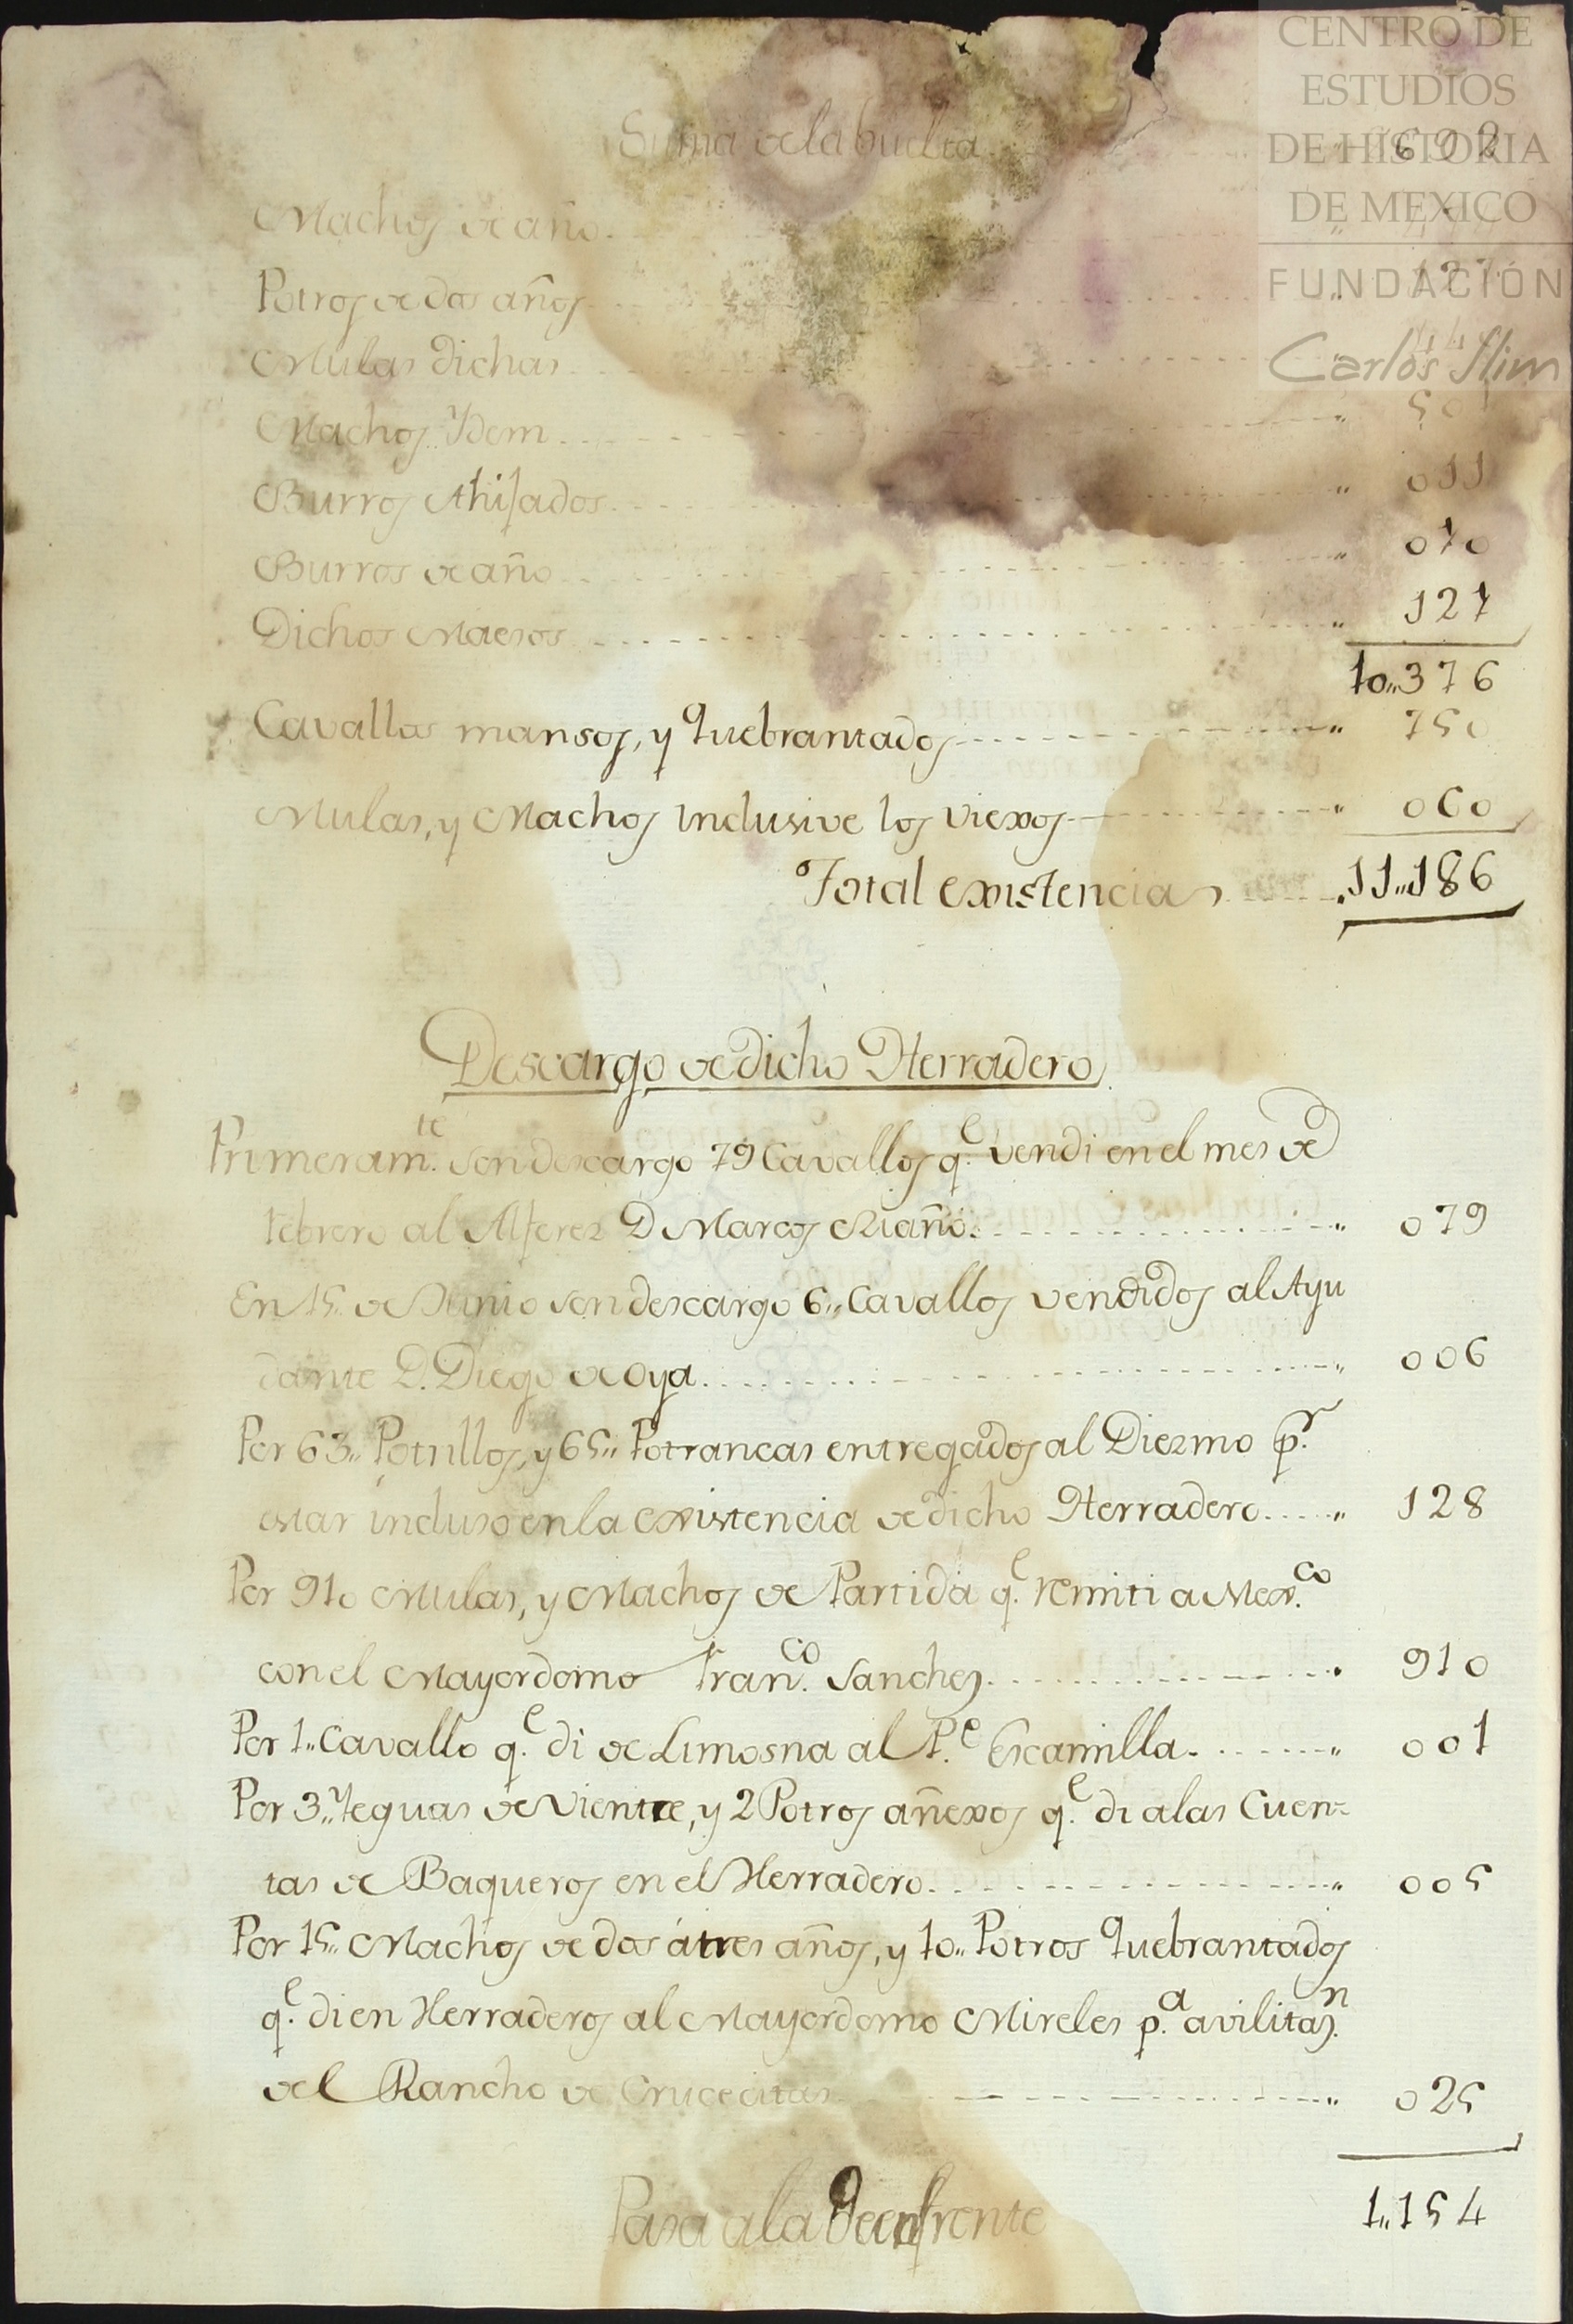 CENTRO DE
ESTUDIOS
DE HISTORIA
DE MEXICO
FUNDACIÓN
Carlos Slim
Suma de la buelta
Machos de año
Potros de dos años
Mulas dichas
Machos Ydem
Burros Ahijados " 011
Burros de año " 070
Dichos Maesos " 127
10,,376
Cavallos mansos, y Quebrantados " 750
Mulas, y Machos inclusive los viexos " 060
Total existencias 11,,186
Descargo de dicho Herradero
Primeram.te son descargo 79 Cavallos q.e vendi en el mes de
febrero al Alferez D Marcos Riaño. " 079
En 15 de Junio son descargo 6,, Cavallos vendidos al Ayu
dante D. Diego de Oya. " 006
Por 63,, Potrillos, y 65,, Potrancas entregados al Diezmo p.r
estar incluso en la existencia de dicho Herradero " 128
Por 910 Mulas, y Machos de Partida q.e remiti a Mex.co
con el Mayordomo Fran.co Sanchez " 910
Por 1,, Cavallo q.e di de Limosna al P.e Escamilla " 001
Por 3,, Yeguas de Vientre, y 2 Potros añexos q.e di a las Cuen=
tas de Baqueros en el Herradero " 005
Por 15,, Machos de dos á tres años, y 10,, Potros Quebrantados
q.e di en Herraderos al Mayordomo Mireles p.a avilitaz.n
del Rancho de Crucecitas " 025
Pasa a la de enfrente 1,,154